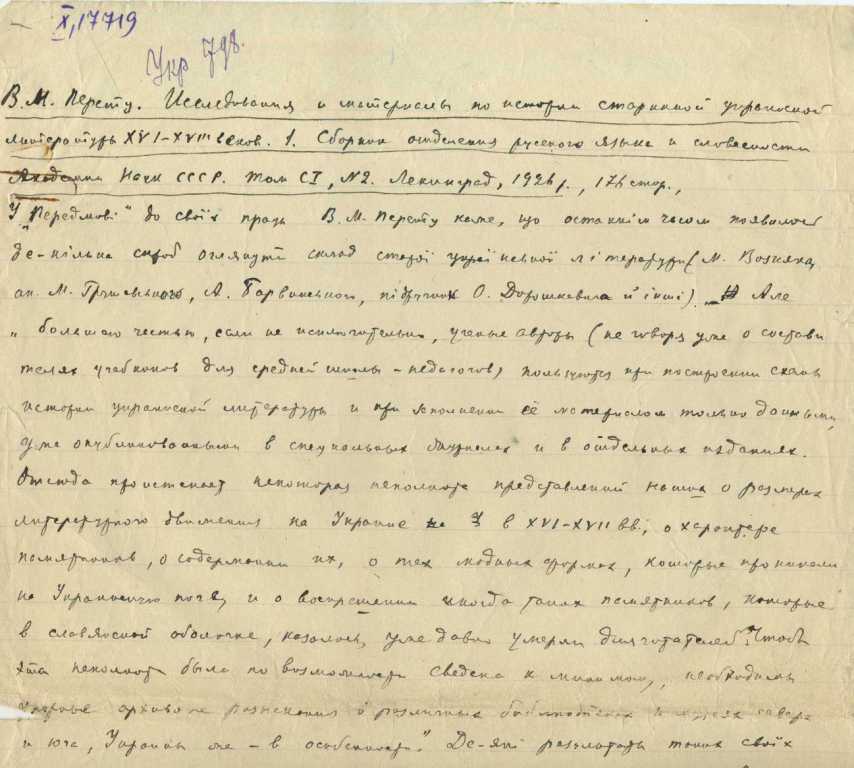 X, 17719
Укр 798.
В. М. Перетц. Исследования и материалы по истории старинной украинской
литературы XVI–XVIII веков. 1. Сборник отделения русского языка и словесности
Академии Наук СССР. Том CI, №2. Ленинград, 1926 р., 176 стор.,
У „Передмові" до своїх праць В. М. Перетц каже, що останнім часом появилось
де-кілька спроб оглянути склад старої української літератури (М. Возняка,
ак. М. Грушевського, А. Барвінського, підручник О. Дорошкевича й інші). Але
„большею частью, если не исключительно, ученые авторы (не говоря уже о состави
телях учебников для средней школы – педагогов) пользуются при построении схемы
истории украинской литературы и при исполнении её материалом только данными,
уже опубликованными в специальных журналах и в отдельных изданиях.
Отсюда проистекает некоторая неполнота представлений наших о размерах
литературного движения на Украине в XVI–XVII вв., о характере
памятников, о содержании их, о тех модных формах, которые проникали
на Украинскую почву, и о воскрешении иногда таких памятников, которые
в славянской оболочке, казалось, уже давно умерли для читателей. Чтобы
эта неполнота была по возможности сведена к минимуму, необходимы
архивные разыскания в различных библиотеках и музеях севера
и юга, Украины же – в особенности." Де-які результати таких своїх